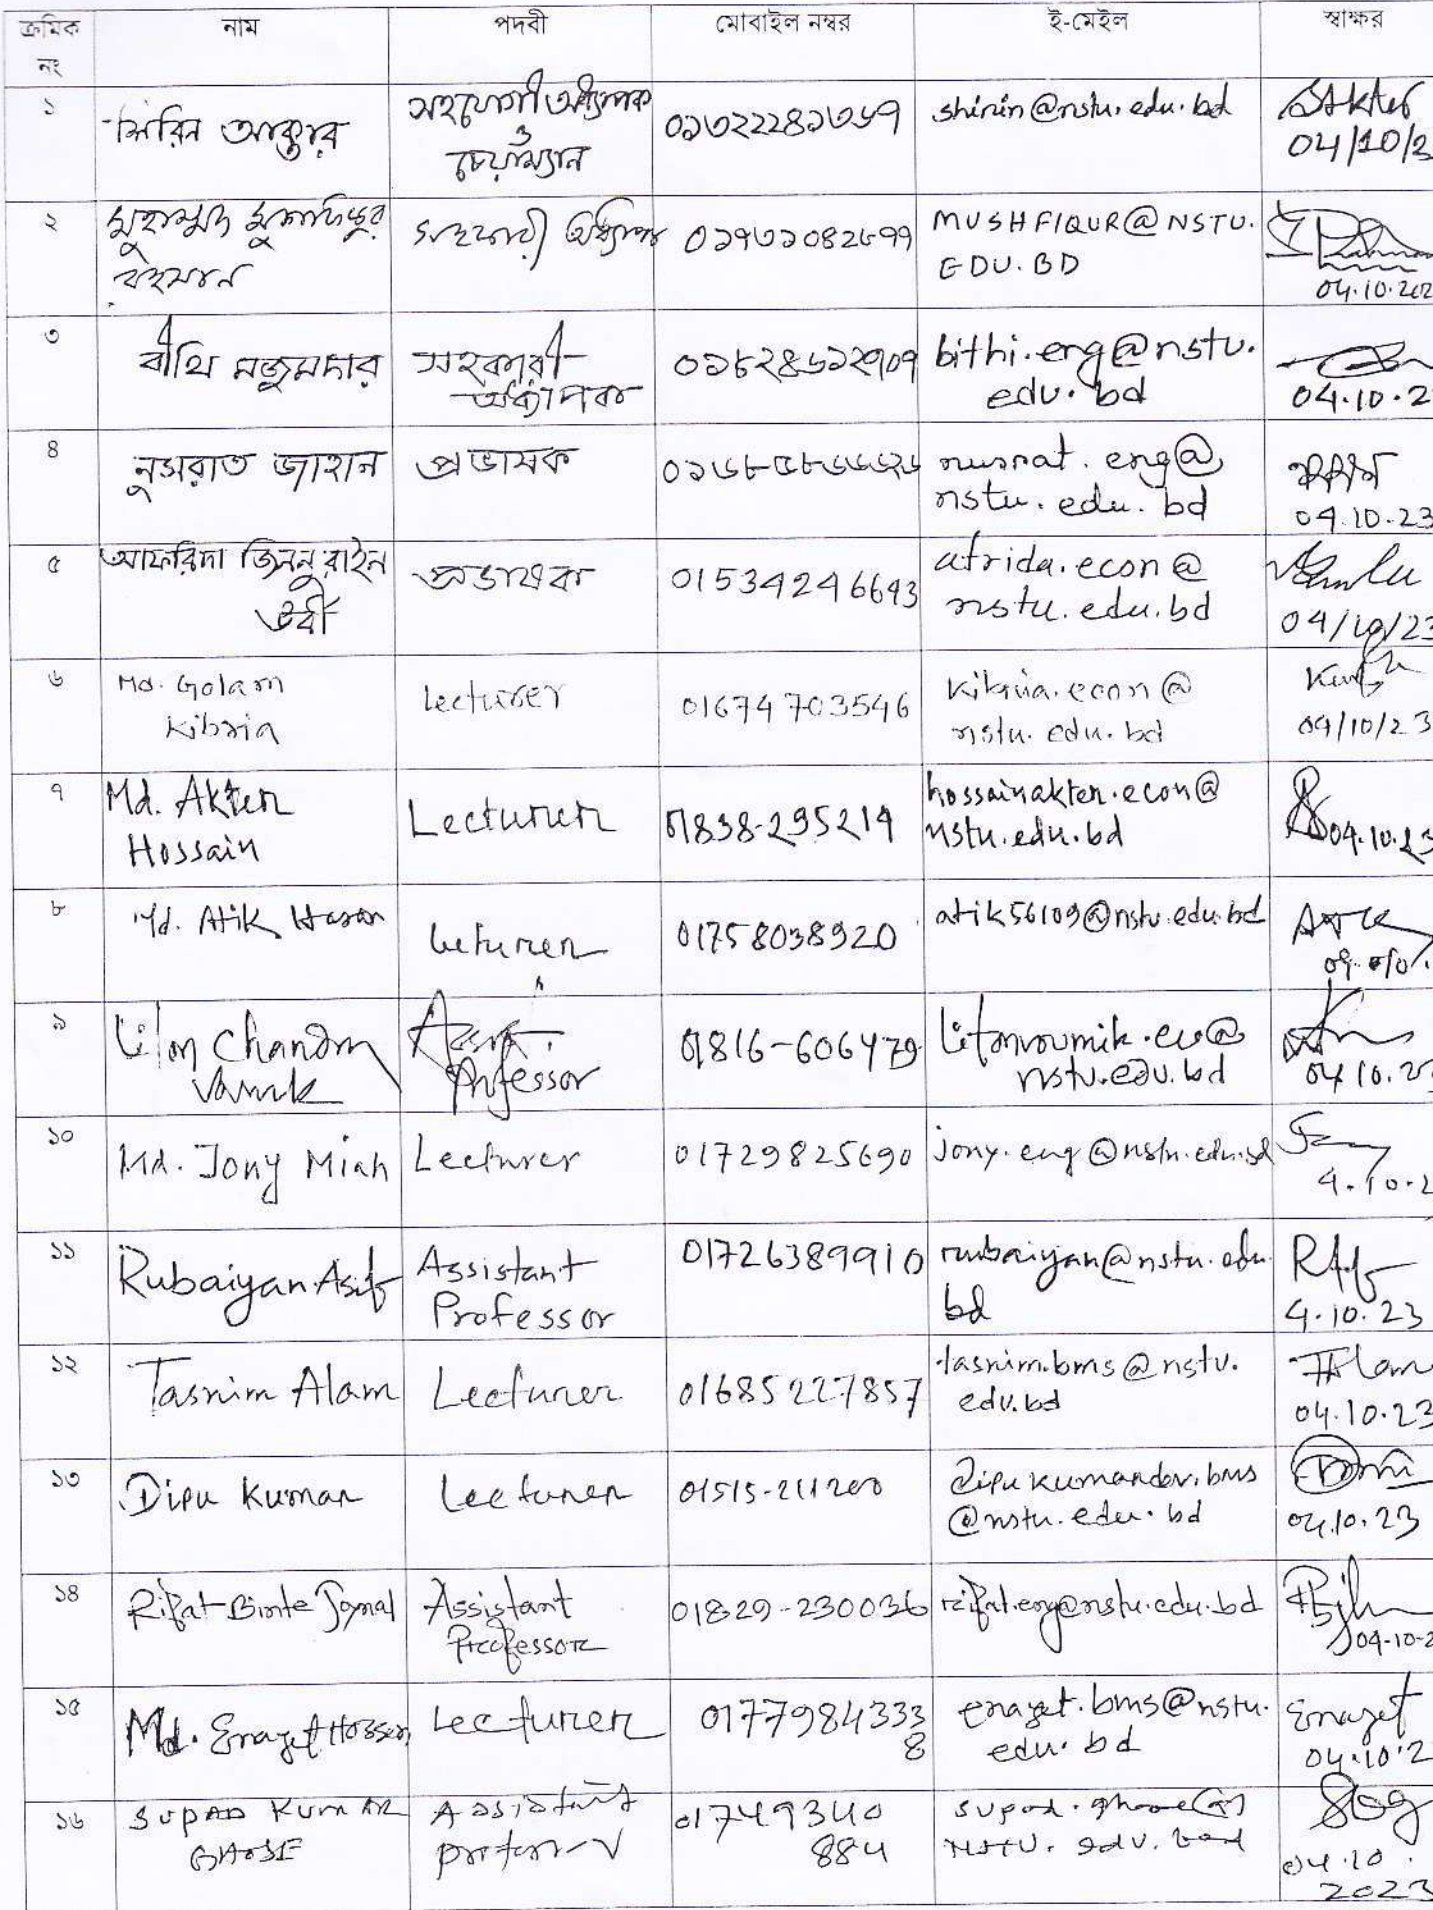 ক্রমিক নং নাম পদবী মোবাইল নম্বর ই-মেইল স্বাক্ষর
১ শিরিন আক্তার সহযোগী অধ্যাপক ও চেয়ারম্যান shirin@nstu.edu.bd 04/10/2
২ মুহাম্মদ মুশফিকুর রহমান সহকারী অধ্যাপক MUSHFIQUR@NSTU.EDU.BD 04.10.202
৩ বীথি মজুমদার সহকারী অধ্যাপক bithi.eng@nstu.edu.bd 04.10.2
৪ নুসরাত জাহান প্রভাষক nusrat.eng@nstu.edu.bd 04.10.23
৫ আফরিদা জিননুরাইন উর্বী প্রভাষক 01534246643 afrida.econ@nstu.edu.bd 04/10/23
৬ Md. Golam Kibria Lecturer 01674703546 kibria.econ@nstu.edu.bd 04/10/23
৭ Md. Akter Hossain Lecturer 01838-295214 hossainakter.econ@nstu.edu.bd 04.10.23
৮ Md. Atik Hasan Lecturer 01758038920 atik56109@nstu.edu.bd
৯ Liton Chandra Professor 01816-606479 nstu.edu.bd 04.10.2
১০ Md. Jony Miah Lecturer 01729825690 jony.eng@nstu.edu.bd 4.10.2
১১ Rubaiyan Asif Assistant Professor 01726389910 rubaiyan@nstu.edu.bd 4.10.23
১২ Tasnim Alam Lecturer 01685227857 tasnim.bms@nstu.edu.bd TAlam 04.10.23
১৩ Dipu Kumar Lecturer @nstu.edu.bd 04.10.23
১৪ Rifat Binte Joynal Assistant Professor 01829-230036 rifat.eng@nstu.edu.bd 04-10-2
১৫ Md. Enayet Hossen Lecturer 01779843338 enayet.bms@nstu.edu.bd Enayet 04.10.2
১৬ SUPAD KUMAR GHOSE Assistant professor 01749340884 supad.ghose@nstu.edu.bd 04.10.2023